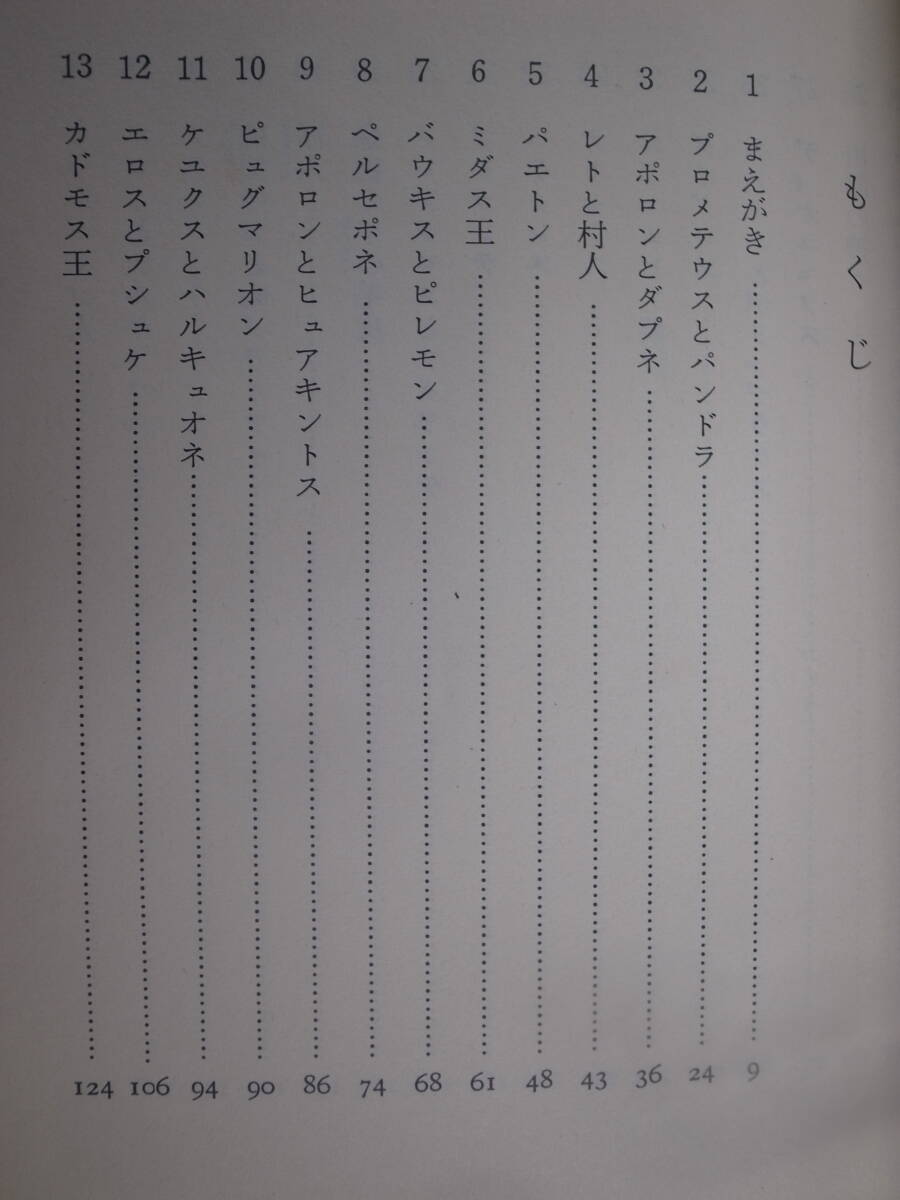 もくじ
1 まえがき……………9
2 プロメテウスとパンドラ……………24
3 アポロンとダプネ……………36
4 レトと村人……………43
5 パエトン……………48
6 ミダス王……………61
7 バウキスとピレモン……………68
8 ペルセポネ……………74
9 アポロンとヒュアキントス……………86
10 ピュグマリオン……………90
11 ケユクスとハルキュオネ……………94
12 エロスとプシュケ……………106
13 カドモス王……………124